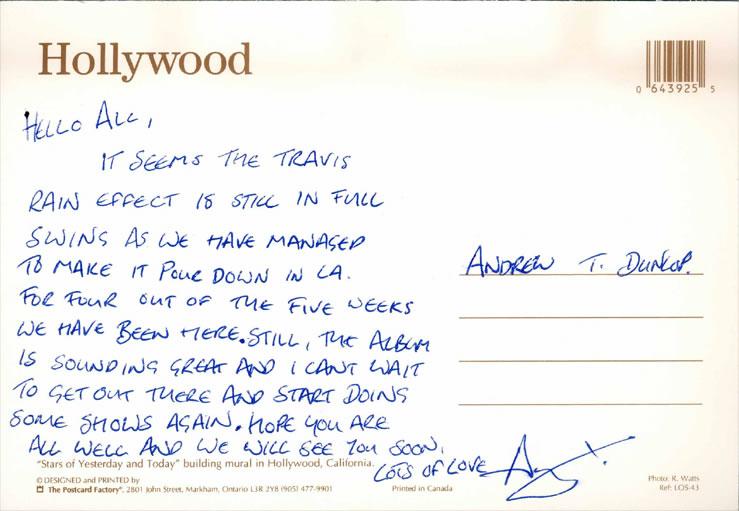 Hollywood
0 643925 5
HELLO ALL,
IT SEEMS THE TRAVIS
RAIN EFFECT IS STILL IN FULL
SWING AS WE HAVE MANAGED
TO MAKE IT POUR DOWN IN LA.
FOR FOUR OUT OF THE FIVE WEEKS
WE HAVE BEEN HERE. STILL, THE ALBUM
IS SOUNDING GREAT AND I CANT WAIT
TO GET OUT THERE AND START DOING
SOME SHOWS AGAIN. HOPE YOU ARE
ALL WELL AND WE WILL SEE YOU SOON,
LOTS OF LOVE
ANDREW T. DUNLOP.
"Stars of Yesterday and Today" building mural in Hollywood, California.
© DESIGNED and PRINTED by
The Postcard Factory®, 2801 John Street, Markham, Ontario L3R 2Y8 (905) 477-9901
Printed in Canada
Photo: R. Watts
Ref: LOS-43